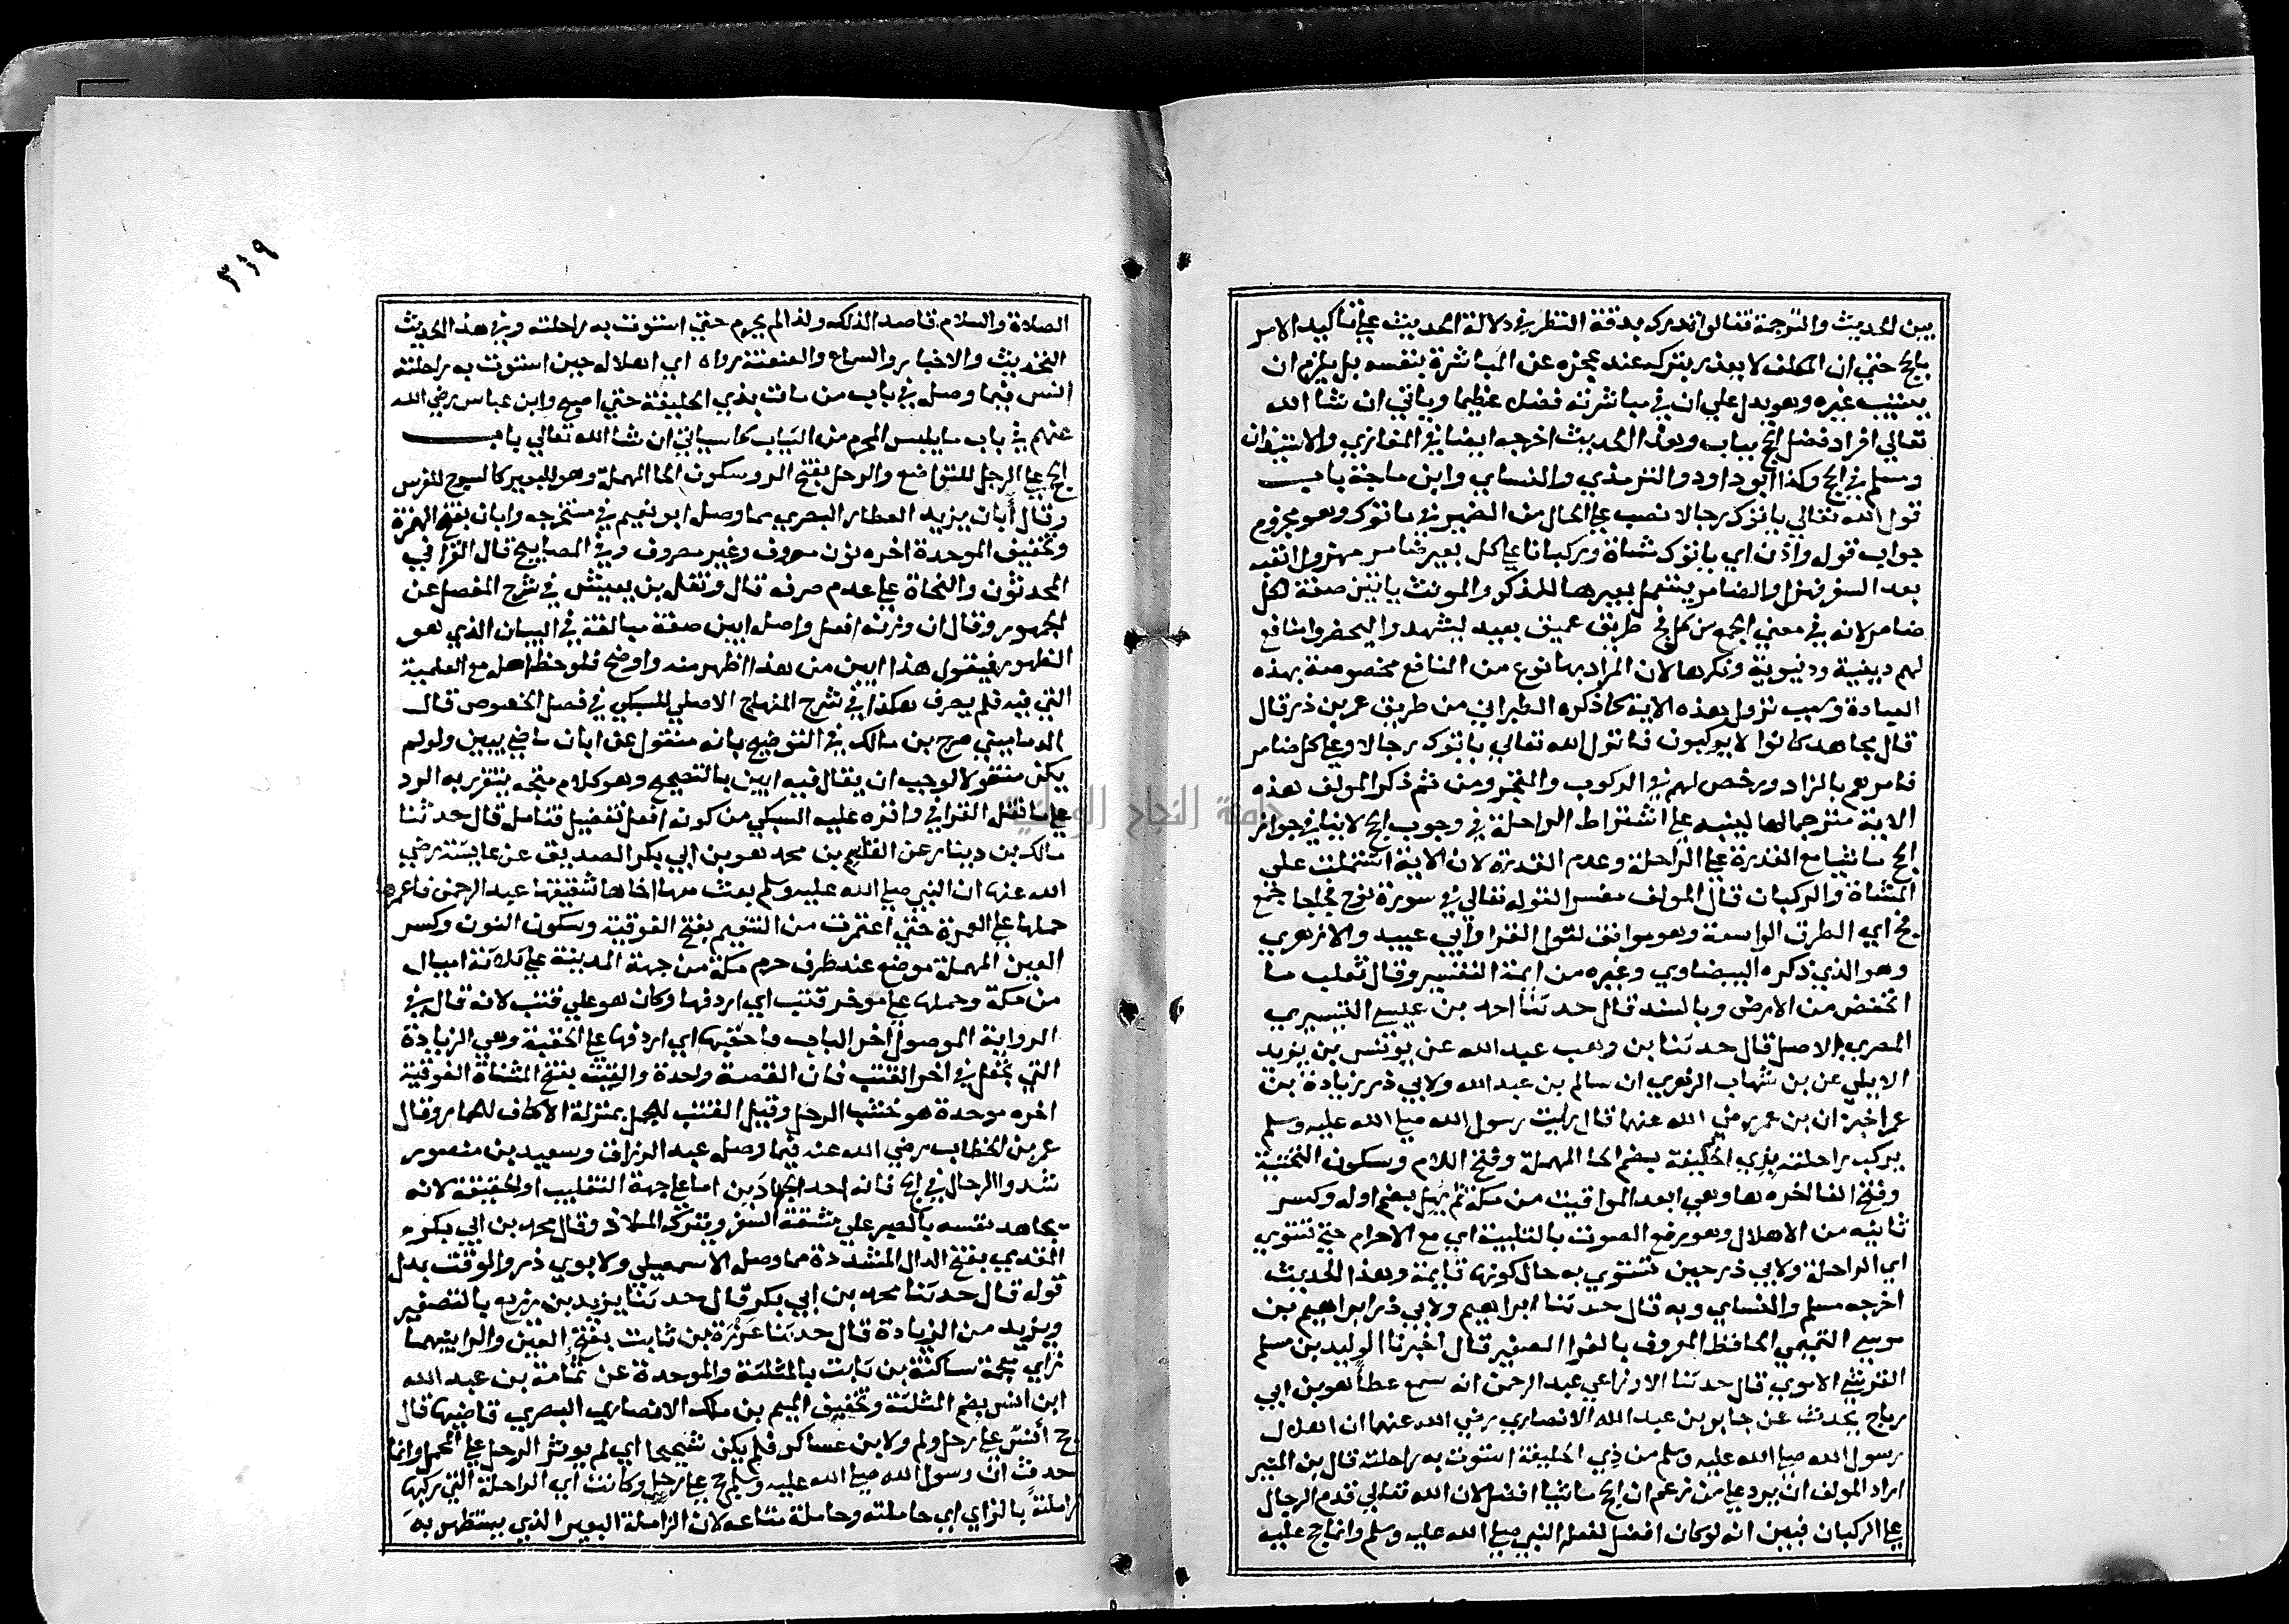 بين الحديث والترجمة تقالوا تدرك بدقة النظر في دلالة الحديث علي تاكيد الامر
بالحج حتي ان المكلف لا يعذر بتركه عند عجزه عن المباشرة بنفسه بل يلزم ان
يستنيب غيره وهو يدل علي ان في مباشرته فضلا عظيما وياتي ان شا الله
تعالي افراد فضل الحج بباب وهذا الحديث اخرجه ايضا في المغازي والاستيذان
ومسلم في الحج وكذا ابو داود والترمذي والنساي وابن ماجة باب
قول الله تعالي ياتوك رجالا نصب علي الحال من الضمير في ياتوك وهو مجزوم
جواب قوله واذن اي ياتوك مشاة وركبانا علي كل بعير ضامر مهزول اتعبه
بعد السفر فهزل والضامر يشتمل بعيرها للمذكر والمونث ياتين صفة لكل
ضامر لانه في معني الجمع من كل فج طريق عميق بعيد ليشهدوا ليحضروا منافع
لهم دينية ودنيوية ونكرها لان المراد بها نوع من المنافع مخصوصة بهذه
العبادة وسبب نزول هذه الاية كما ذكره الطبراني من طريق عمر بن ذر قال
قال مجاهد كانوا لا يركبون فانزل الله تعالي ياتوك رجالا وعلي كل ضامر
فامرهم بالزاد ورخص لهم في الركوب والمتجر ومن ثم ذكر المولف هذه
الاية مترجما لها لينبه علي ان اشتراط الراحلة في وجوب الحج لا ينافي جواز
الحج ماشيا مع القدرة علي الراحلة وعدم القدرة لان الاية اشتملت علي
المشاة والركبان قال المولف مفسرا لقوله تعالي في سورة نوح فجاجا جمع
فج اي الطرق الواسعة وهو موافق لقول الفرا وابي عبيد والازهري
وهو الذي ذكره البيضاوي وغيره من ايمة التفسير وقال ثعلب ما
انخفض من الارض وبالسند قال حدثنا احمد بن عيسي التستري
المصري الاصل قال حدثنا بن وهب عبد الله عن يونس بن يزيد
الايلي عن بن شهاب الزهري ان سالم بن عبد الله ولابي ذر زيادة بن
عمر اخبره ان بن عمر رضي الله عنهما قال رايت رسول الله صلي الله عليه وسلم
يركب راحلته بذي الحليفة بضم الحا المهملة وفتح اللام وسكون التحتية
وفتح الفا اخره ها وهي ابعد المواقيت من مكة ثم يهل بضم اوله وكسر
ثانيه من الاهلال وهو رفع الصوت بالتلبية اي مع الاحرام حتي تستوي
اي الراحلة ولابي ذر حين تستوي به حال كونها قايمة وهذا الحديث
اخرجه مسلم والنساي وبه قال حدثنا ابراهيم ولابي ذر ابراهيم بن
موسي التميمي الحافظ المعروف بالفرا الصغير قال اخبرنا الوليد بن مسلم
القرشي الاموي قال حدثنا الاوزاعي عبد الرحمن انه سمع عطا هو بن ابي
رباح يحدث عن جابر بن عبد الله الانصاري رضي الله عنهما ان اهلال
رسول الله صلي الله عليه وسلم من ذي الحليفة استوت به راحلته قال بن المنير
اراد المولف ان يرد علي من زعم ان الحج ماشيا افضل لان الله تعالي قدم الرجال
علي الركبان فبين انه لو كان افضل لفعله النبي صلي الله عليه وسلم وانما حج عليه
٣١٩
الصلاة والسلام قاصدا لذلك ولذا لم يحرم حتي استوت به راحلته وفي هذا الحديث
التحديث والاخبار والسماع والعنعنة رواه اي اهلاله حين استوت به راحلته
انس فيما وصله في باب من بات بذي الحليفة حتي اصبح وابن عباس رضي الله
عنهم في باب ما يلبس المحرم من الثياب كما سياتي ان شا الله تعالي باب
الحج علي الرحل للتواضع والرحل بفتح الر وسكون الحا المهملة وهو للبعير كالسرج للفرس
وقال أبان بن يزيد العطار البصري مما وصله ابو نعيم في مستخرجه وابان بفتح الهمزة
وتخفيف الموحدة اخره نون معروف وغير مصروف وفي المصابيح قال القرافي
المحدثون والنحاة علي عدم صرفه قال ونقل بن يعيش في شرح المفصل عن
الجمهور وقال ان وزنه افعل واصله ابين صفة مبالغة في البيان الذي هو
الظهور فيقول هذا ابين من هذا اظهر منه واوضح فلوحظ اصله مع العلمية
التي فيه فلم يصرف هكذا في شرح المنهاج الاصلي للسبكي في فصل الخصوص قال
الدماميني صرح بن مالك في التوضيح بانه منقول من ابان ماضي يبين ولو لم
يكن منقولا لوجب ان يقال فيه ابين بالتصحيح وهو كلام متجه يتقرر به الرد
علي ما نقله القرافي واقره عليه السبكي من كونه افعل تفضيل فتامل قال حدثنا
مالك بن دينار عن القاسم بن محمد هو بن ابي بكر الصديق عن عايشة رضي
الله عنها ان النبي صلي الله عليه وسلم بعث معها اخاها شقيقها عبد الرحمن فاعمرها
حملها علي العمرة حتي اعتمرت من التنعيم بفتح الفوقية وسكون النون وكسر
العين المهملة موضع عند طرف حرم مكة من جهة المدينة علي ثلاثة اميال
من مكة وحملها علي موخر قتب اي اردفها وكان هو علي قتب لانه قال في
الرواية الموصول اخر الباب فاحقبها اي اردفها علي الحقيبة وهي الزيادة
التي تجعل في اخر القتب فان القصة واحدة والقتب بفتح المثناة الفوقية
اخره موحدة هو خشب الرحل وقيل القتب للجمل بمنزلة الاكاف للحمار وقال
عمر بن الخطاب رضي الله عنه فيما وصله عبد الرزاق وسعيد بن منصور
شدوا الرحال في الحج فانه احد الجهادَين اما علي جهة التغليب او الحقيقة لانه
يجاهد نفسه بالصبر علي مشقة السفر وترك الملاذ وقال محمد بن ابي بكر
المقدمي بفتح الدال المشددة مما وصله الاسمعيلي ولابوي ذر والوقت بدل
قوله قال حدثنا محمد بن ابي بكر قال حدثنا يزيد بن زريع بالتصغير
ويزيد من الزيادة قال حدثنا عَزْرَة بن ثابت بفتح العين والرا بينهما
زاي معجمة ساكنة بن ثابت بالمثلثة والموحدة عن ثمامة بن عبد الله
ابن انس بضم المثلثة وتخفيف الميم بن ملك الانصاري البصري قاضيها قال
حج أنسٌ علي رحل ولم ولابن عساكر فلم يكن شحيحا اي لم يوثر الرحل علي المحمل وانما
حدث ان رسول الله صلي الله عليه وسلم حج علي رحل وكانت اي الراحلة التي ركبها
زاملتهُ بالزاي اي حاملته وحاملة متاعه لان الزاملة البعير الذي يستظهر به